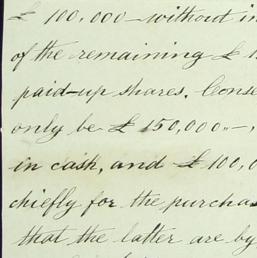 £ 100,000 – without in
of the remaining £ 1
paid-up shares. Conse
only be £ 150,000. –,
in cash, and £ 100,0
chiefly for the purcha
that the latter are by